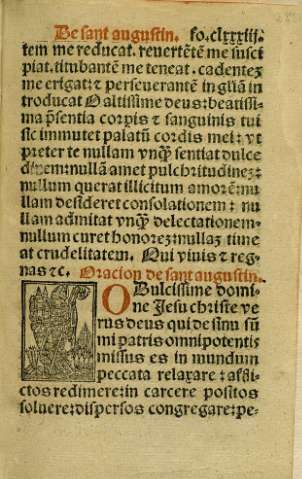 De sant augustin. fo. clxxxiij.
tem me reducat. reuertētē me susci
piat. titubantē me teneat. cadentez
me erigat: ⁊ perseuerantē in gl̄iā in
troducat O altissime deus: beatissi-
ma p̄sentia corpis ⁊ sanguinis tui
sic immutet palatū cordis mei: vt
preter te nullam vnq̄ sentiat dulce
dinem: nullā amet pulchritudinez:
nullum querat illicitum amorē: nu
llam desideret consolationem: nu
llam admitat vnq̄ delectationem.
nullum curet honorez: nullaz time
at crudelitatem. Qui viuis ⁊ reg-
nas ⁊c. Oracion de sant augustin.
O Dulcissime domi-
ne Jesu christe ve
rus deus qui de sinu sū
mi patris omnipotentis
missus es in mundum
peccata relaxare: afli-
ctos redimere: in carcere positos
soluere: dispersos congregare: pe-